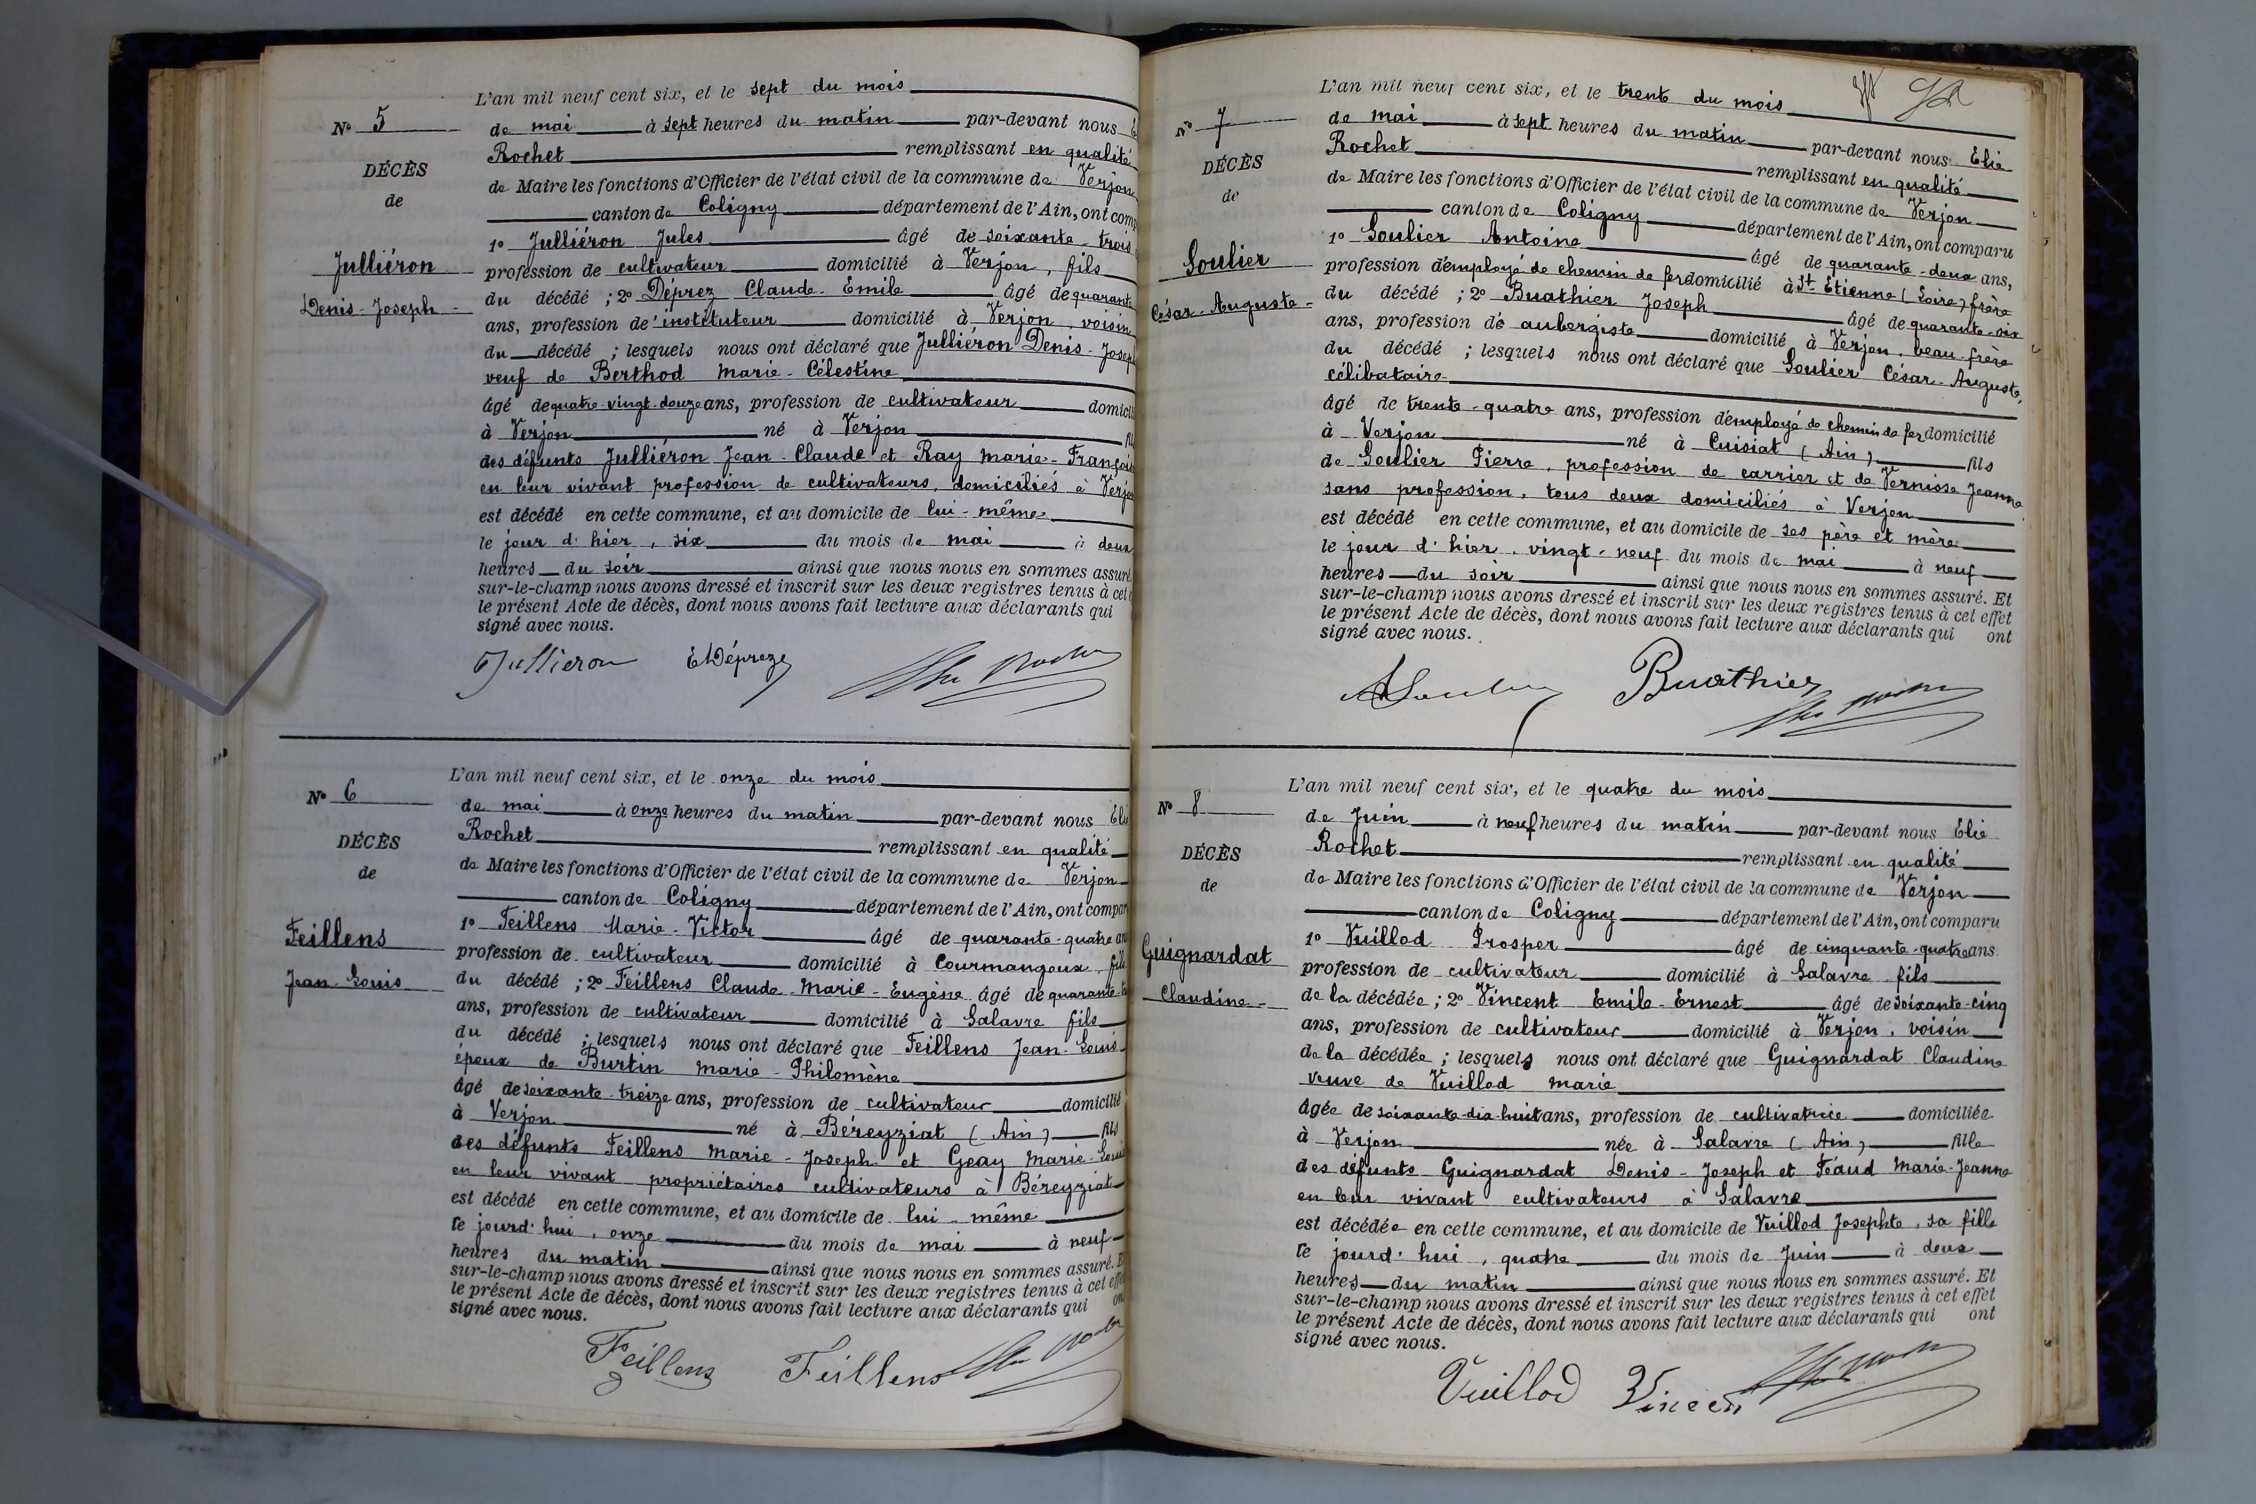 L'an mil neuf cent six, et le sept du mois
N° 5
de mai à sept heures du matin par-devant nous
Rochet remplissant en qualité
DÉCÈS
de Maire les fonctions d'Officier de l'état civil de la commune de Verjon
de
canton de Coligny département de l'Ain, ont
1° Julliéron Jules âgé de soixante-trois
Julliéron
profession de cultivateur domicilié à Verjon, fils
Denis-Joseph
du décédé ; 2° Déprez Claude-Émile âgé de quarante
ans, profession de instituteur domicilié à Verjon, voisin
du décédé ; lesquels nous ont déclaré que Julliéron Denis-Joseph
veuf de Berthod Marie-Célestine
âgé de quatre-vingt-douze ans, profession de cultivateur
à Verjon né à Verjon
des défunts Julliéron Jean-Claude et Ray Marie-Françoise
en leur vivant profession de cultivateurs, domiciliés à Verjon
est décédé en cette commune, et au domicile de lui-même
le jour d'hier, six du mois de mai à deux
heures du soir ainsi que nous nous en sommes assuré
sur-le-champ nous avons dressé et inscrit sur les deux registres tenus à cet
le présent Acte de décès, dont nous avons fait lecture aux déclarants qui
signé avec nous.
Jullieron EDéprez
L'an mil neuf cent six, et le onze du mois
N° 6
de mai à onze heures du matin par-devant nous Elie
Rochet remplissant en qualité
DÉCÈS
de Maire les fonctions d'Officier de l'état civil de la commune de Verjon
de
canton de Coligny département de l'Ain, ont
1° Feillens Marie-Victor âgé de quarante-quatre
Feillens
profession de cultivateur domicilié à Courmangoux, fils
Jean Louis
du décédé ; 2° Feillens Claude-Marie-Eugène âgé de quarante
ans, profession de cultivateur domicilié à Salavre fils
du décédé ; lesquels nous ont déclaré que Feillens Jean-Louis
époux de Burtin Marie-Philomène
âgé de soixante-treize ans, profession de cultivateur domicilié
à Verjon né à Béreyziat (Ain) fils
des défunts Feillens Marie-Joseph et Geay Marie-Louise
en leur vivant propriétaires cultivateurs à Béreyziat
est décédé en cette commune, et au domicile de lui-même
le jourd'hui, onze du mois de mai à neuf
heures du matin ainsi que nous nous en sommes assuré.
sur-le-champ nous avons dressé et inscrit sur les deux registres tenus à cet effet
le présent Acte de décès, dont nous avons fait lecture aux déclarants qui
signé avec nous.
Feillens Feillens
L'an mil neuf cent six, et le trente du mois
N° 7
de mai à sept heures du matin par-devant nous Elie
Rochet remplissant en qualité
DÉCÈS
de Maire les fonctions d'Officier de l'état civil de la commune de Verjon
de
canton de Coligny département de l'Ain, ont comparu
1° Soulier Antoine âgé de quarante-deux ans,
Soulier
profession d'employé de chemin de fer domicilié à St-Étienne (Loire) frère
César-Auguste
du décédé ; 2° Buathier Joseph âgé de quarante-six
ans, profession de aubergiste domicilié à Verjon, beau-frère
du décédé ; lesquels nous ont déclaré que Soulier César-Auguste,
célibataire
âgé de trente-quatre ans, profession d'employé de chemin de fer domicilié
à Verjon né à Cuisiat (Ain) fils
de Soulier Pierre, profession de carrier et de Vernisse Jeanne
sans profession, tous deux domiciliés à Verjon
est décédé en cette commune, et au domicile de ses père et mère
le jour d'hier, vingt-neuf du mois de mai à neuf
heures du soir ainsi que nous nous en sommes assuré. Et
sur-le-champ nous avons dressé et inscrit sur les deux registres tenus à cet effet
le présent Acte de décès, dont nous avons fait lecture aux déclarants qui ont
signé avec nous.
ASoulier Buathier
L'an mil neuf cent six, et le quatre du mois
N° 8
de Juin à neuf heures du matin par-devant nous Elie
Rochet remplissant en qualité
DÉCÈS
de Maire les fonctions d'Officier de l'état civil de la commune de Verjon
de
canton de Coligny département de l'Ain, ont comparu
1° Vuillod Prosper âgé de cinquante-quatre ans
Guignardat
profession de cultivateur domicilié à Salavre fils
Claudine
de la décédée ; 2° Vincent Emile-Ernest âgé de soixante-cinq
ans, profession de cultivateur domicilié à Verjon, voisin
de la décédée ; lesquels nous ont déclaré que Guignardat Claudine
veuve de Vuillod Marie
âgée de soixante-dix-huit ans, profession de cultivatrice domiciliée
à Verjon née à Salavre (Ain) fille
des défunts Guignardat Denis-Joseph et Féaud Marie-Jeanne
en leur vivant cultivateurs à Salavre
est décédée en cette commune, et au domicile de Vuillod Josephte, sa fille
le jourd'hui, quatre du mois de Juin à deux
heures du matin ainsi que nous nous en sommes assuré. Et
sur-le-champ nous avons dressé et inscrit sur les deux registres tenus à cet effet
le présent Acte de décès, dont nous avons fait lecture aux déclarants qui ont
signé avec nous.
Vuillod Vincent